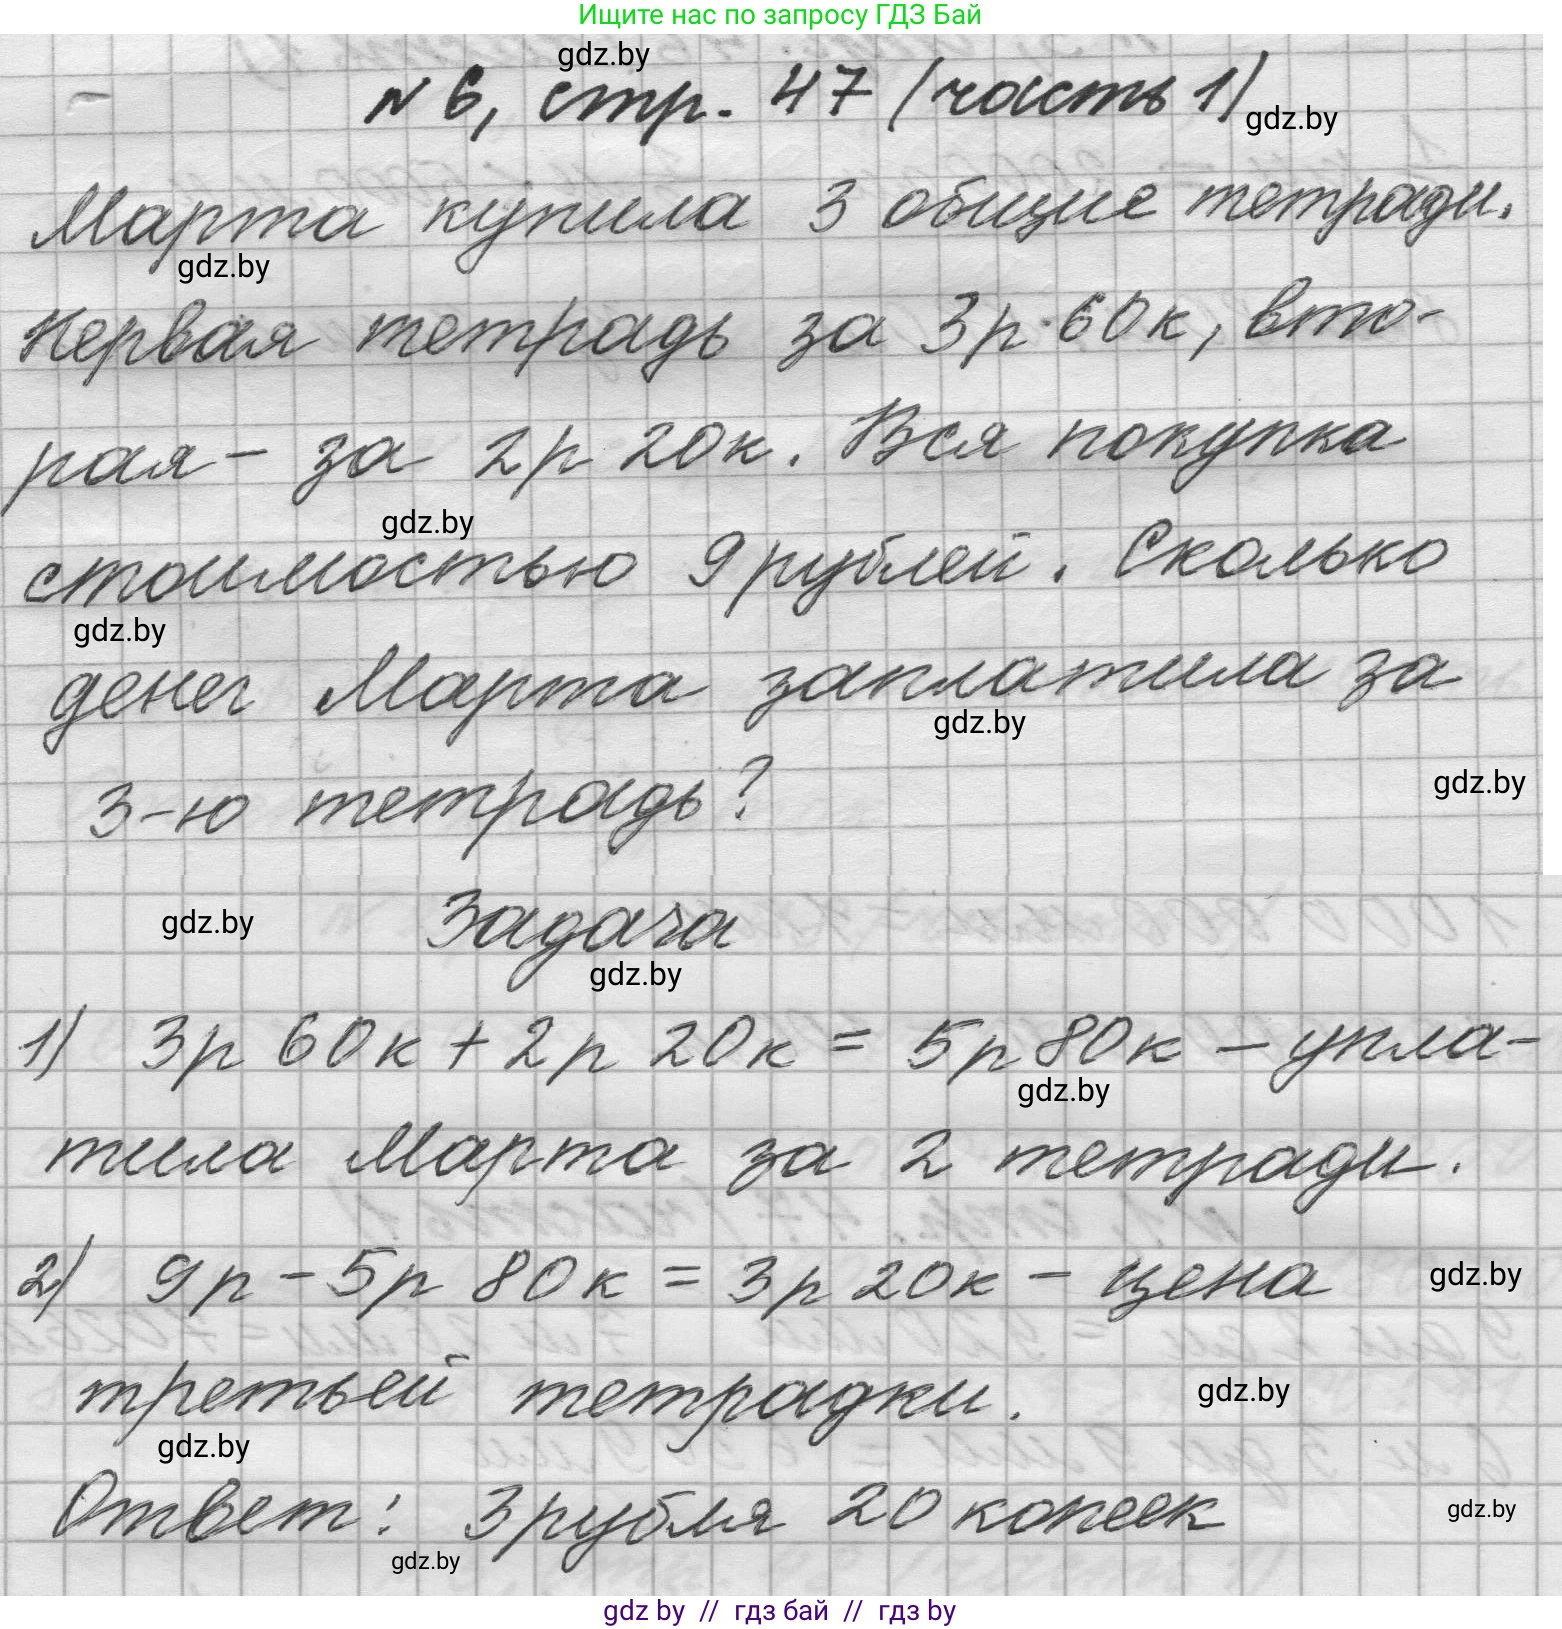 Ищите нас по запросу ГДЗ Бай
gdz.by
№ 6, стр. 47 (часть 1)
gdz.by
Марта купила 3 общие тетради.
gdz.by
Первая тетрадь за 3р 60к, вто-
рая – за 2р 20к. Вся покупка
gdz.by
стоимостью 9 рублей. Сколько
gdz.by
денег Марта заплатила за
gdz.by
3-ю тетрадь?
gdz.by
Задача
gdz.by
gdz.by
1) 3р 60к + 2р 20к = 5р 80к – упла-
gdz.by
тила Марта за 2 тетради.
2) 9р – 5р 80к = 3р 20к – цена
gdz.by
третьей тетрадки.
gdz.by
gdz.by
Ответ: 3 рубля 20 копеек
gdz.by
gdz.by
gdz by // гдз бай // гдз by